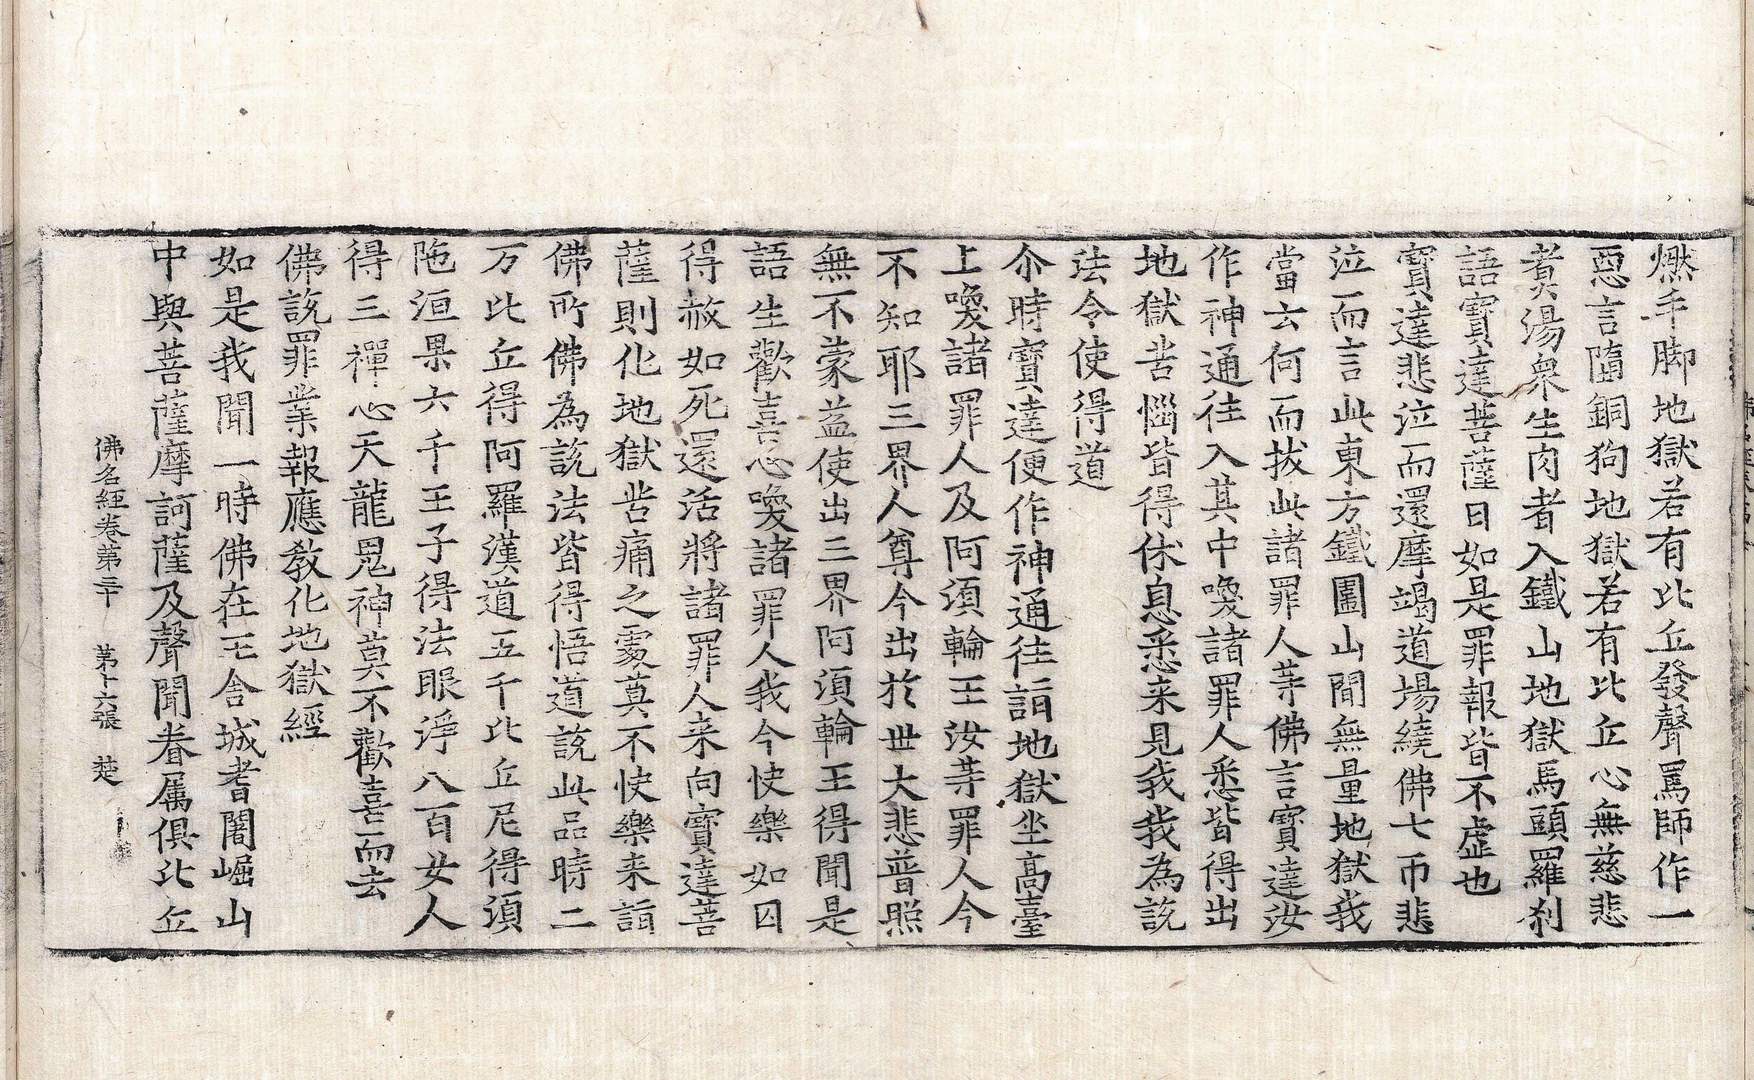 燃手脚地獄若有比丘發聲罵師作一
惡言隨銅狗地獄若有比丘心無慈悲
煑湯衆生肉者入鐵山地獄馬頭羅刹
語寶達菩薩曰如是罪報皆不虛也
寶達悲泣而還摩竭道場繞佛七帀悲
泣而言此東方鐵圍山間無量地獄我
當云何而拔此諸罪人䓁佛言寶達汝
作神通往入其中喚諸罪人悉皆得出
地獄苦惱皆得休息悉来見我我為說
法令使得道
尒時寶達便作神通往詣地獄坐高臺
上喚諸罪人及阿須輪王汝䓁罪人今
不知耶三界人尊今出於世大悲普照
無不蒙益使出三界阿須輪王得聞是
語生歡喜心喚諸罪人我今快樂如囚
得赦如死還活將諸罪人来向寶達菩
薩則化地獄苦痛之處莫不快樂来詣
佛所佛為說法皆得悟道說此品時二
万比丘得阿羅漢道五千比丘尼得須
陁洹果六千王子得法眼淨八百女人
得三禪心天龍鬼神莫不歡喜而去
佛說罪業報應教化地獄經
如是我聞一時佛在王舍城耆闍崛山
中與菩薩摩訶薩及聲聞眷属俱比丘
佛名經卷第三十 第十六張 楚